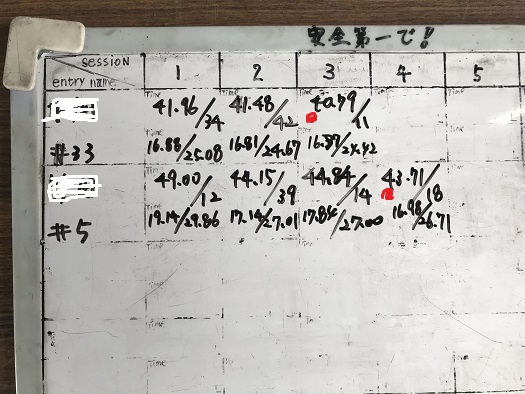 安全第一で!!
SESSION 1 2 3 4 5
entry name
Time Time Time
41.96/34 41.48/42 40.79/11
#33 16.88/25.08 16.81/24.67 16.37/24.42
49.00/12 44.15/39 44.84/14 43.71/18
19.14/29.86 17.14/27.01 17.84/27.00 16.98/26.71
#5
Time
Time